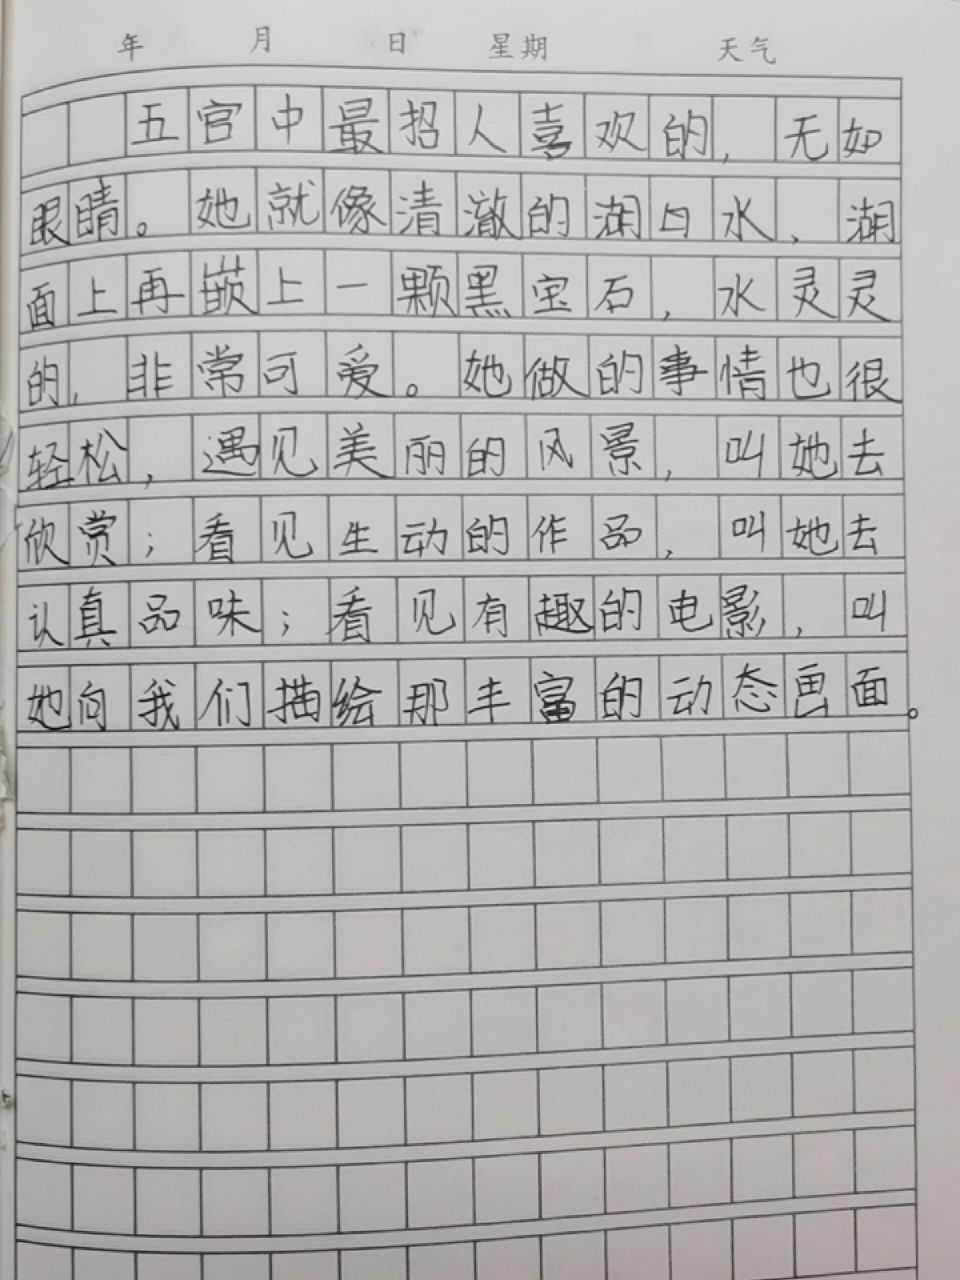 年 月 日 星期 天气
五官中最招人喜欢的，无如
眼睛。她就像清澈的湖水，湖
面上再嵌上一颗黑宝石，水灵灵
的，非常可爱。她做的事情也很
轻松，遇见美丽的风景，叫她去
欣赏；看见生动的作品，叫她去
认真品味；看见有趣的电影，叫
她向我们描绘那丰富的动态画面。